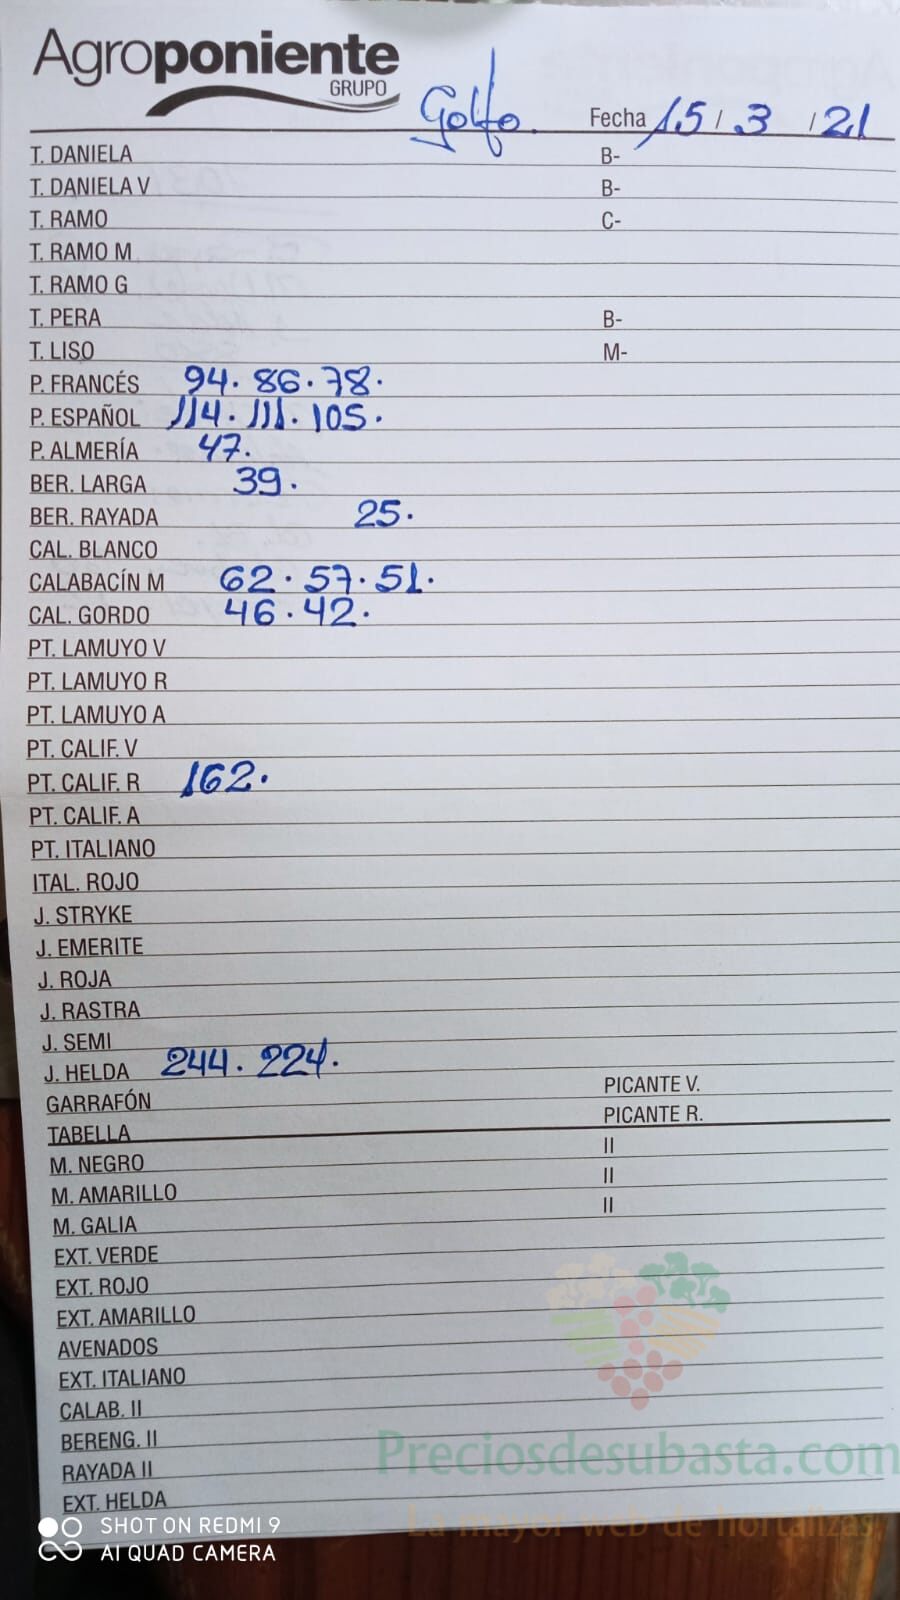 Agroponiente
GRUPO
Golfo. Fecha 15 / 3 / 21
T. DANIELA B-
T. DANIELA V B-
T. RAMO C-
T. RAMO M
T. RAMO G
T. PERA B-
T. LISO M-
P. FRANCÉS 94. 86. 78.
P. ESPAÑOL 114. 111. 105.
P. ALMERÍA 47.
BER. LARGA 39.
BER. RAYADA 25.
CAL. BLANCO
CALABACÍN M 62. 57. 51.
CAL. GORDO 46. 42.
PT. LAMUYO V
PT. LAMUYO R
PT. LAMUYO A
PT. CALIF. V
PT. CALIF. R 162.
PT. CALIF. A
PT. ITALIANO
ITAL. ROJO
J. STRYKE
J. EMERITE
J. ROJA
J. RASTRA
J. SEMI
J. HELDA 244. 224.
GARRAFÓN PICANTE V.
TABELLA PICANTE R.
M. NEGRO II
M. AMARILLO II
M. GALIA II
EXT. VERDE
EXT. ROJO
EXT. AMARILLO
AVENADOS
EXT. ITALIANO
CALAB. II
BERENG. II
Preciosdesubasta.com
RAYADA II
EXT. HELDA
La mayor web de hortalizas
SHOT ON REDMI 9
AI QUAD CAMERA